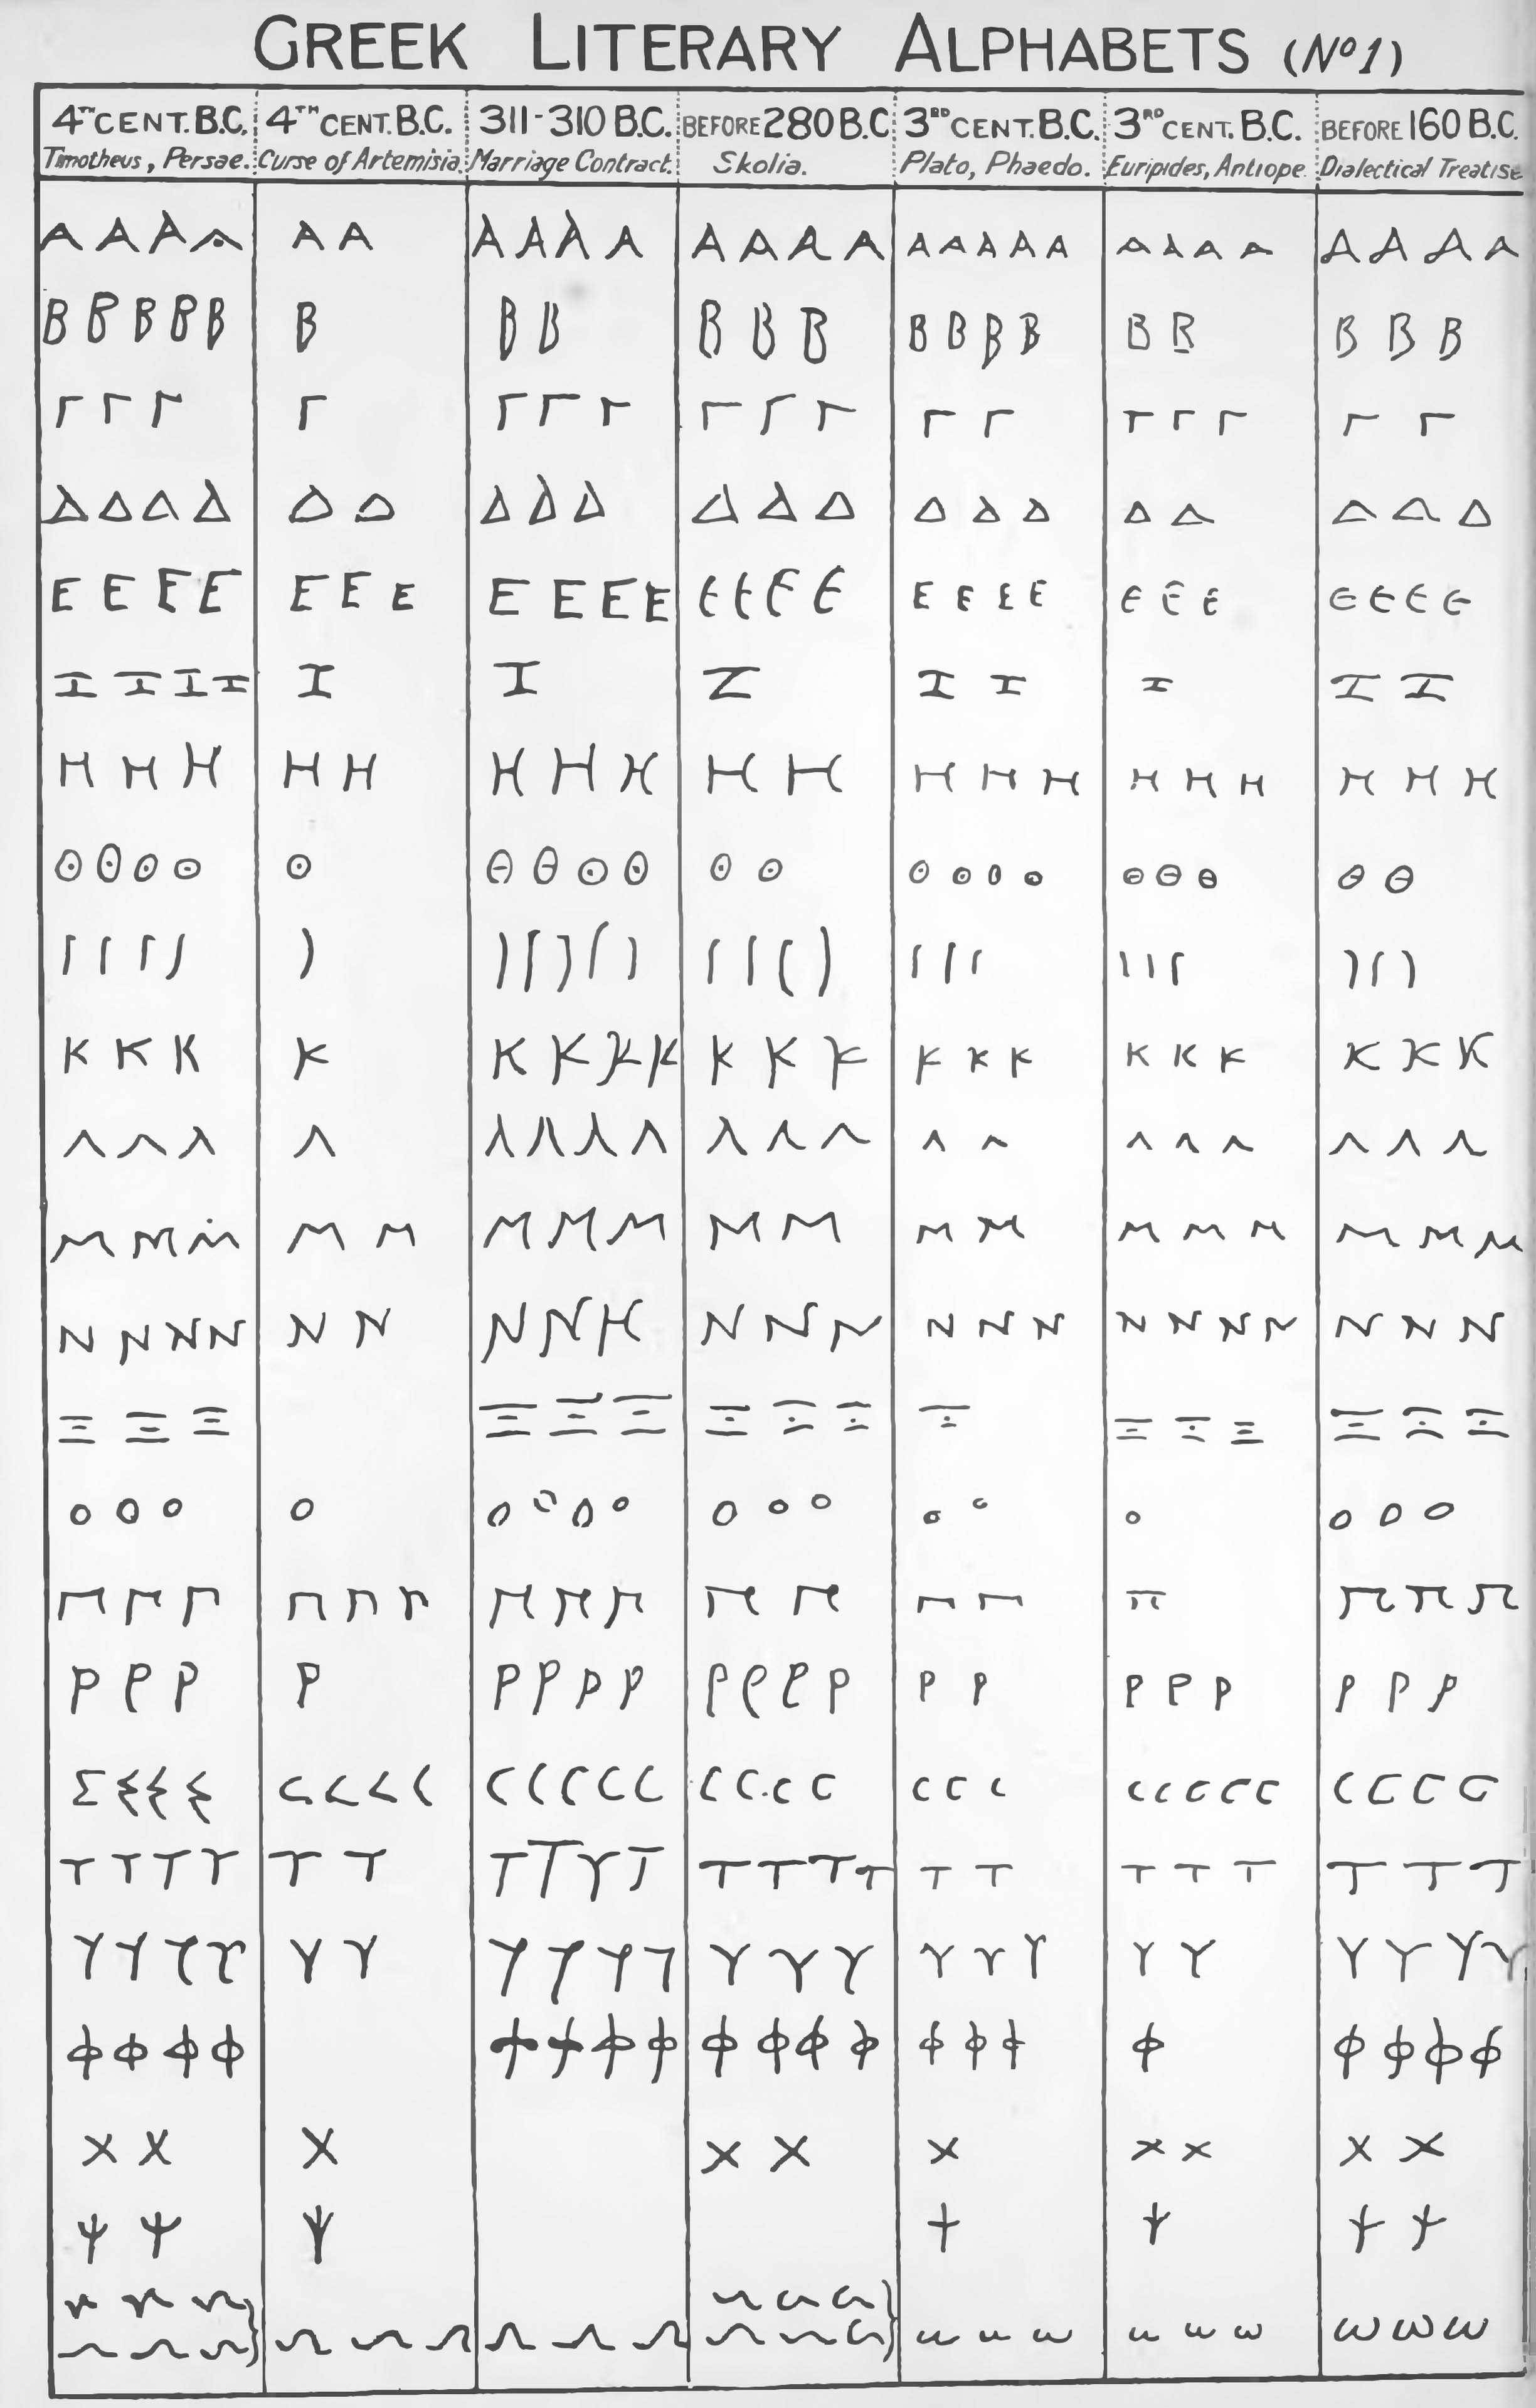 GREEK LITERARY ALPHABETS (Nº1)
4TH CENT. B.C. 4TH CENT. B.C. 311-310 B.C. BEFORE 280 B.C. 3RD CENT. B.C. 3RD CENT. B.C. BEFORE 160 B.C.
Timotheus, Persae. Curse of Artemisia. Marriage Contract. Skolia. Plato, Phaedo. Euripides, Antiope Dialectical Treatise
Α Α Α Α Α Α Α Α Α Α Α Α Α Α Α Α Α Α Α Α Α Α Α Α Α Α Α
Β Β Β Β Β Β Β Β Β Β Β Β Β Β Β Β Β Β Β Β
Γ Γ Γ Γ Γ Γ Γ Γ Γ Γ Γ Γ Γ Γ Γ Γ Γ
Δ Δ Δ Δ Δ Δ Δ Δ Δ Δ Δ Δ Δ Δ Δ Δ Δ Δ Δ Δ
Ε Ε Ε Ε Ε Ε Ε Ε Ε Ε Ε Ε Ε Ε Ε Ε Ε Ε Ε Ε Ε Ε Ε Ε Ε Ε
Ζ Ζ Ζ Ζ Ζ Ζ Ζ Ζ Ζ Ζ Ζ Ζ
Η Η Η Η Η Η Η Η Η Η Η Η Η Η Η Η Η Η Η
Θ Θ Θ Θ Θ Θ Θ Θ Θ Θ Θ Θ Θ Θ Θ Θ Θ Θ Θ Θ
Ι Ι Ι Ι Ι Ι Ι Ι Ι Ι Ι Ι Ι Ι Ι Ι Ι Ι Ι Ι Ι Ι Ι
Κ Κ Κ Κ Κ Κ Κ Κ Κ Κ Κ Κ Κ Κ Κ Κ Κ Κ Κ Κ
Λ Λ Λ Λ Λ Λ Λ Λ Λ Λ Λ Λ Λ Λ Λ Λ Λ Λ Λ
Μ Μ Μ Μ Μ Μ Μ Μ Μ Μ Μ Μ Μ Μ Μ Μ Μ Μ
Ν Ν Ν Ν Ν Ν Ν Ν Ν Ν Ν Ν Ν Ν Ν Ν Ν Ν Ν Ν Ν Ν
Ξ Ξ Ξ Ξ Ξ Ξ Ξ Ξ Ξ Ξ Ξ Ξ Ξ Ξ Ξ Ξ
Ο Ο Ο Ο Ο Ο Ο Ο Ο Ο Ο Ο Ο Ο Ο Ο Ο
Π Π Π Π Π Π Π Π Π Π Π Π Π Π Π Π Π
Ρ Ρ Ρ Ρ Ρ Ρ Ρ Ρ Ρ Ρ Ρ Ρ Ρ Ρ Ρ Ρ Ρ Ρ Ρ Ρ
Σ Σ Σ Σ C C C C C C C C C C C C C C C C C C C C C C C C C
Τ Τ Τ Τ Τ Τ Τ Τ Τ Τ Τ Τ Τ Τ Τ Τ Τ Τ Τ Τ Τ Τ
Υ Υ Υ Υ Υ Υ Υ Υ Υ Υ Υ Υ Υ Υ Υ Υ Υ Υ Υ Υ Υ Υ
Φ Φ Φ Φ Φ Φ Φ Φ Φ Φ Φ Φ Φ Φ Φ Φ Φ Φ Φ Φ
Χ Χ Χ Χ Χ Χ Χ Χ Χ Χ
Ψ Ψ Ψ Ψ Ψ Ψ Ψ
ω ω ω ω ω ω
ω ω ω ω ω ω ω ω ω ω ω ω ω ω ω ω ω ω ω ω ω